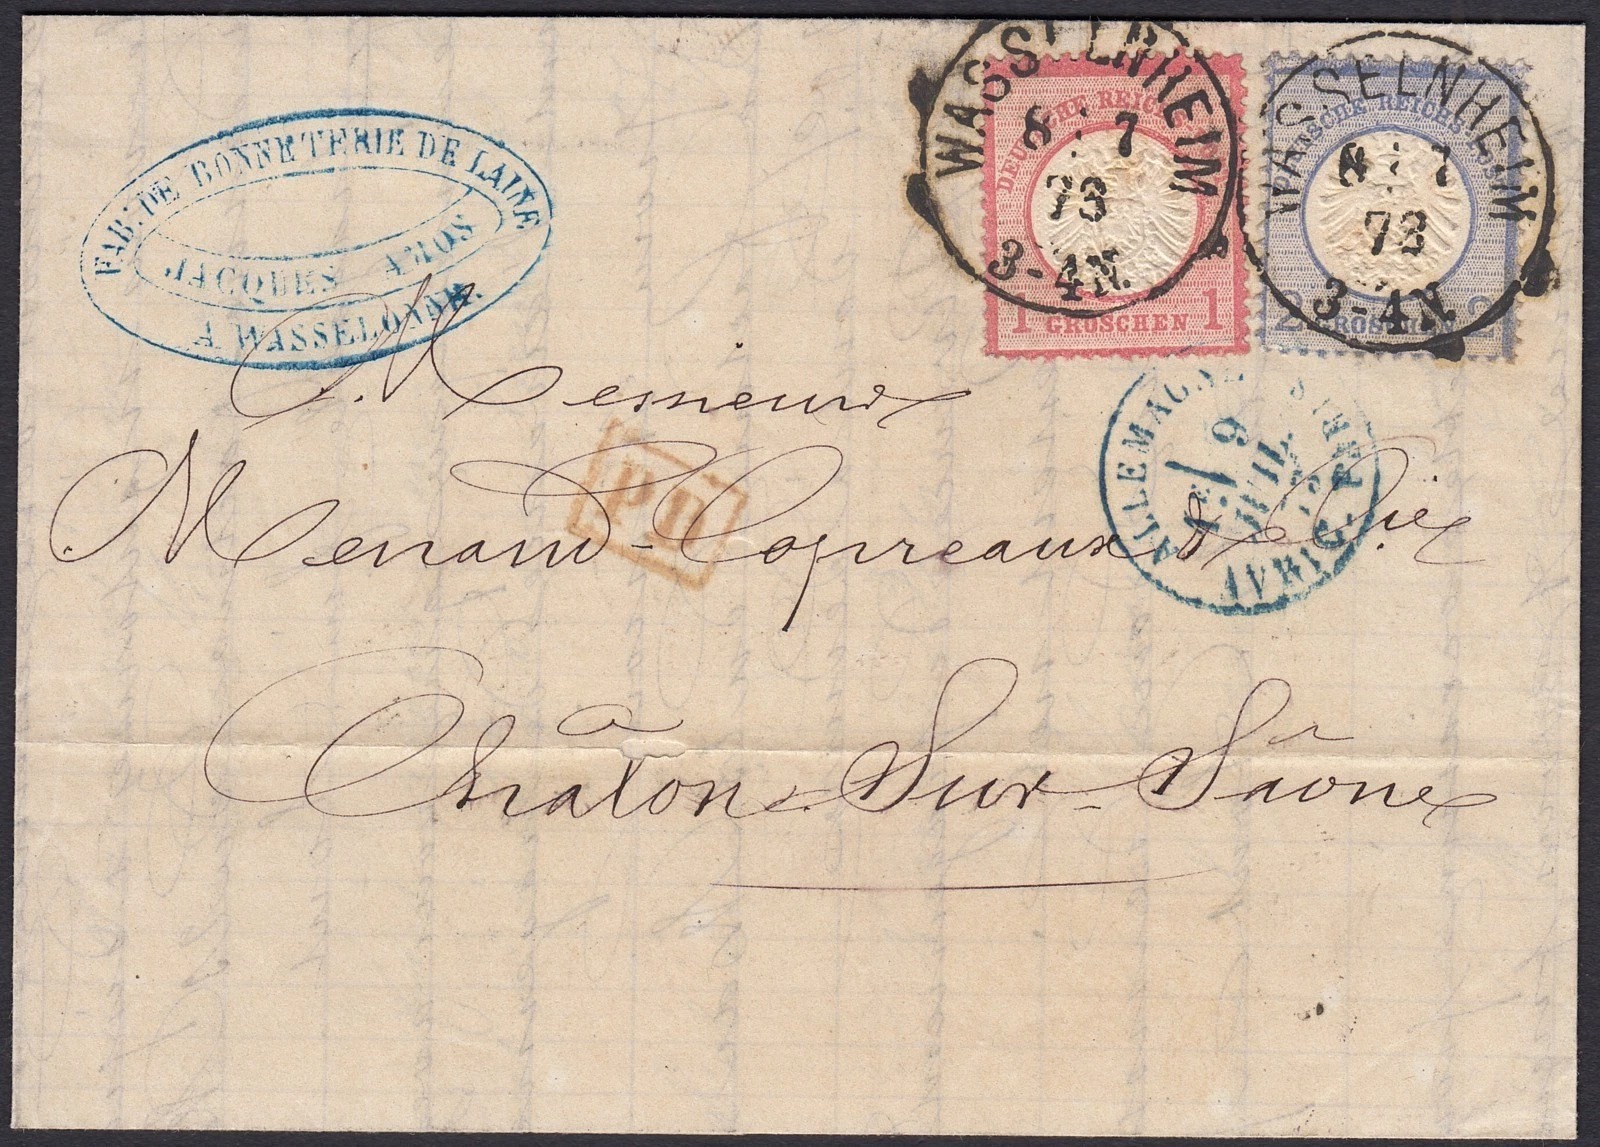 FAB: DE BONNETERIE DE LAINE
JACQUES AMOS
A WASSELONNE.
WASSELNHEIM
8 : 7
73
3-4N.
DEUTSCHE REICHS
1 GROSCHEN 1
WASSELNHEIM
8 : 7
73
3-4N
DEUTSCHE REICHS
2 GROSCHEN 2
Messieurs
PD
ALLEMAGNE
9
JUIL.
73
AVRIC. PAR
Menand-Copreaux & Cie
Châlon-Sur-Saône